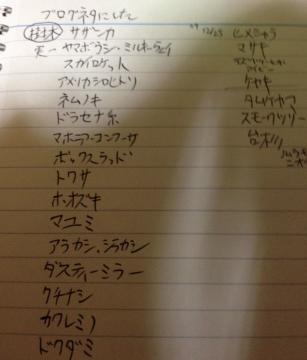 ブログネタにした
樹木 サザンカ
ヤマボウシ・ミルキーウェイ
スカイロケット
アメリカシロヒトリ
ネムノキ
ドラセナ系
マホニアコンフューサ
ボックスウッド
トクサ
ホオズキ
マユミ
アラカシ、シラカシ
ダスティーミラー
クチナシ
カクレミノ
ドクダミ
12/25
ヒメシャラ
マサキ
ケヤキ
タムケヤマ
スモークツリー